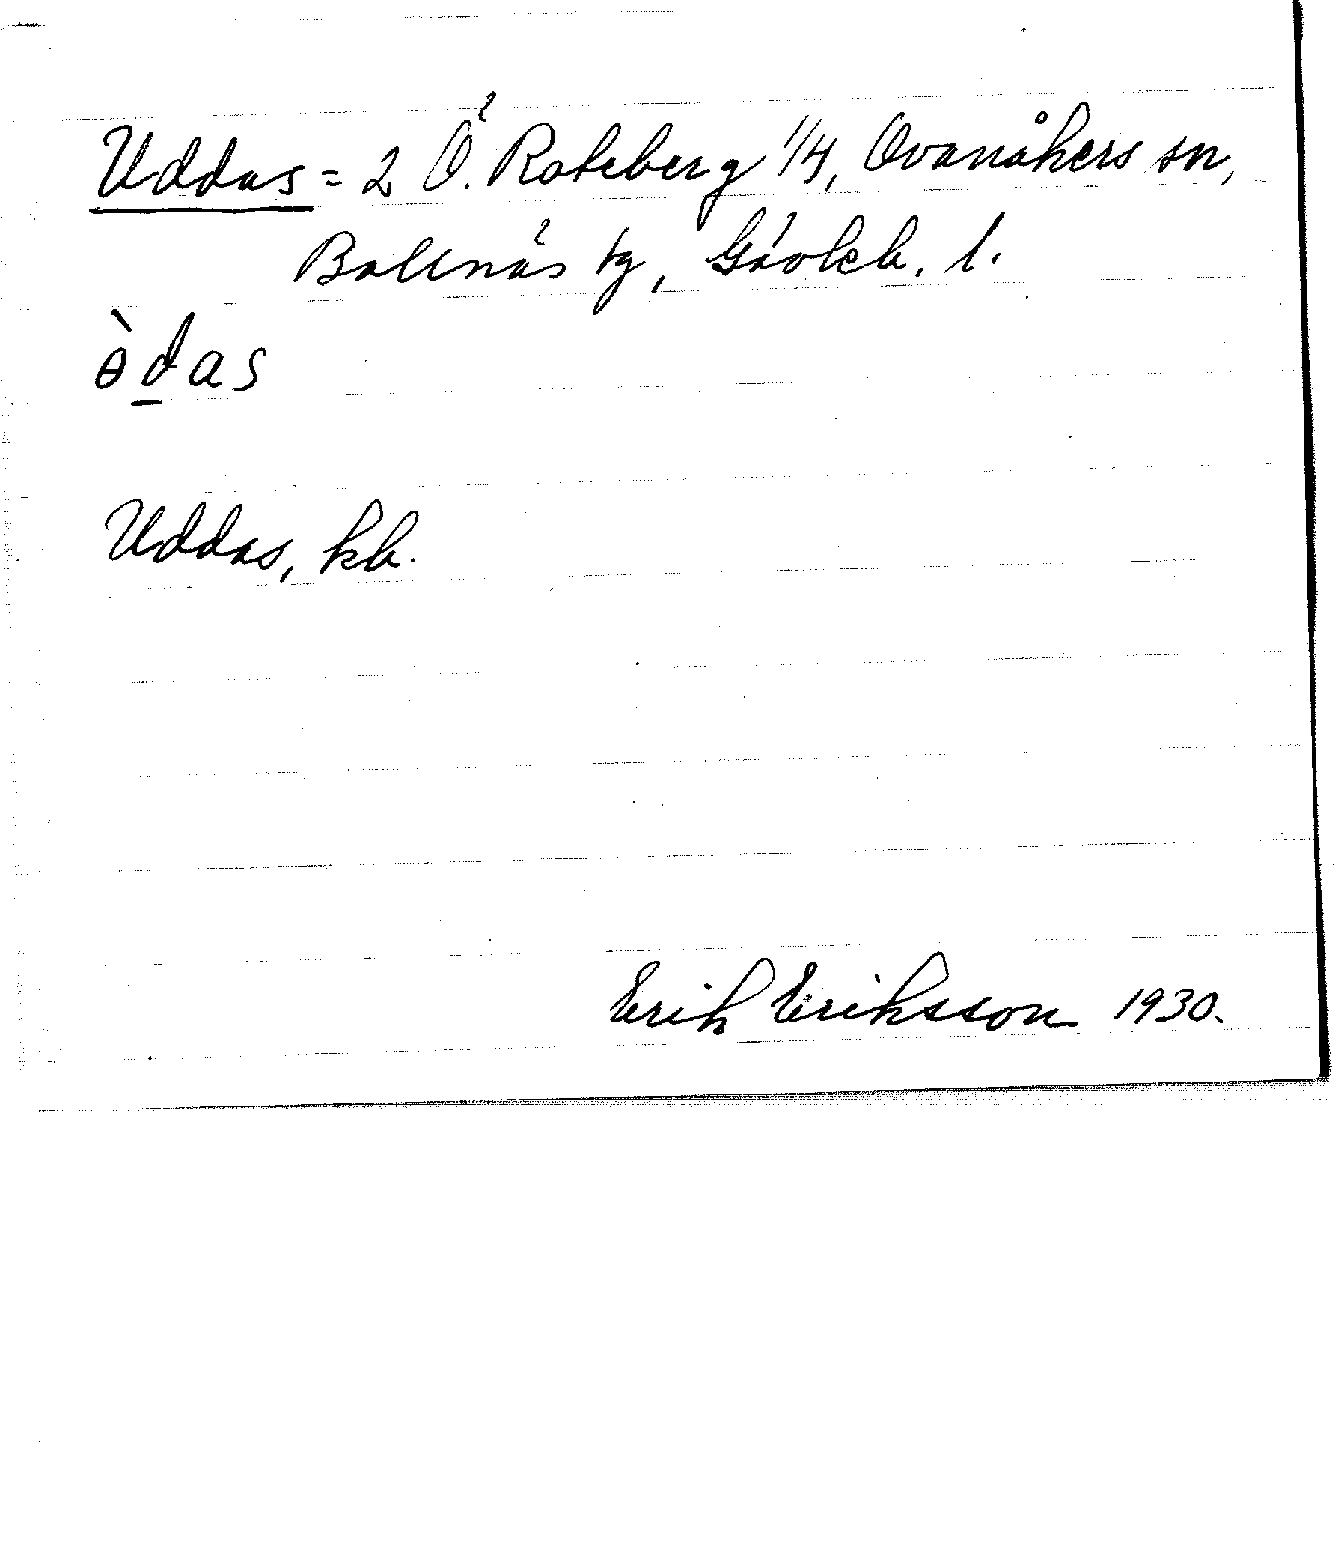 Uddas = 2 Ö. Roteberg 1/4, Ovanåkers sn,
Bollnäs tg, Gävleb. l.
ɵ̀d̲as
Uddas, kb.
Erik Eriksson 1930.